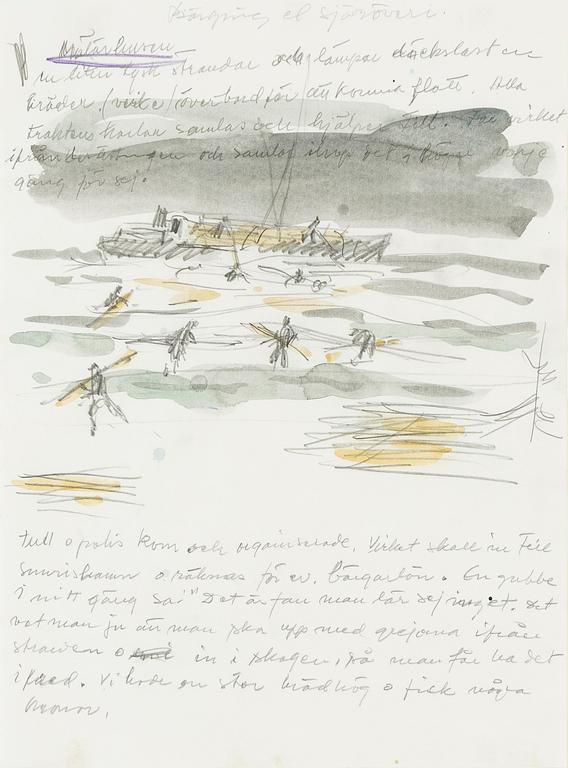 Bärgning el sjöröveri.
Mälarhusen
en liten tysk strandar och lämpar däckslasten
bräder /virke/ överbord för att komma flott. Alla
traktens karlar samlas och hjälper till. virket
ifrån och samlar ihop det i högar varje
gäng för sej.
Tull o polis kom och organiserade. Virket skall in till
Simrishamn o räknas för ev. bärgarlön. En gubbe
i mitt gäng sa: "Det är fan man lär sej inget. Det
vet man ju att man ska upp med grejorna ifrån
stranden o in i skogen, så man får ha det
i fred. Vi hade en stor brädhög o fick några
kronor.